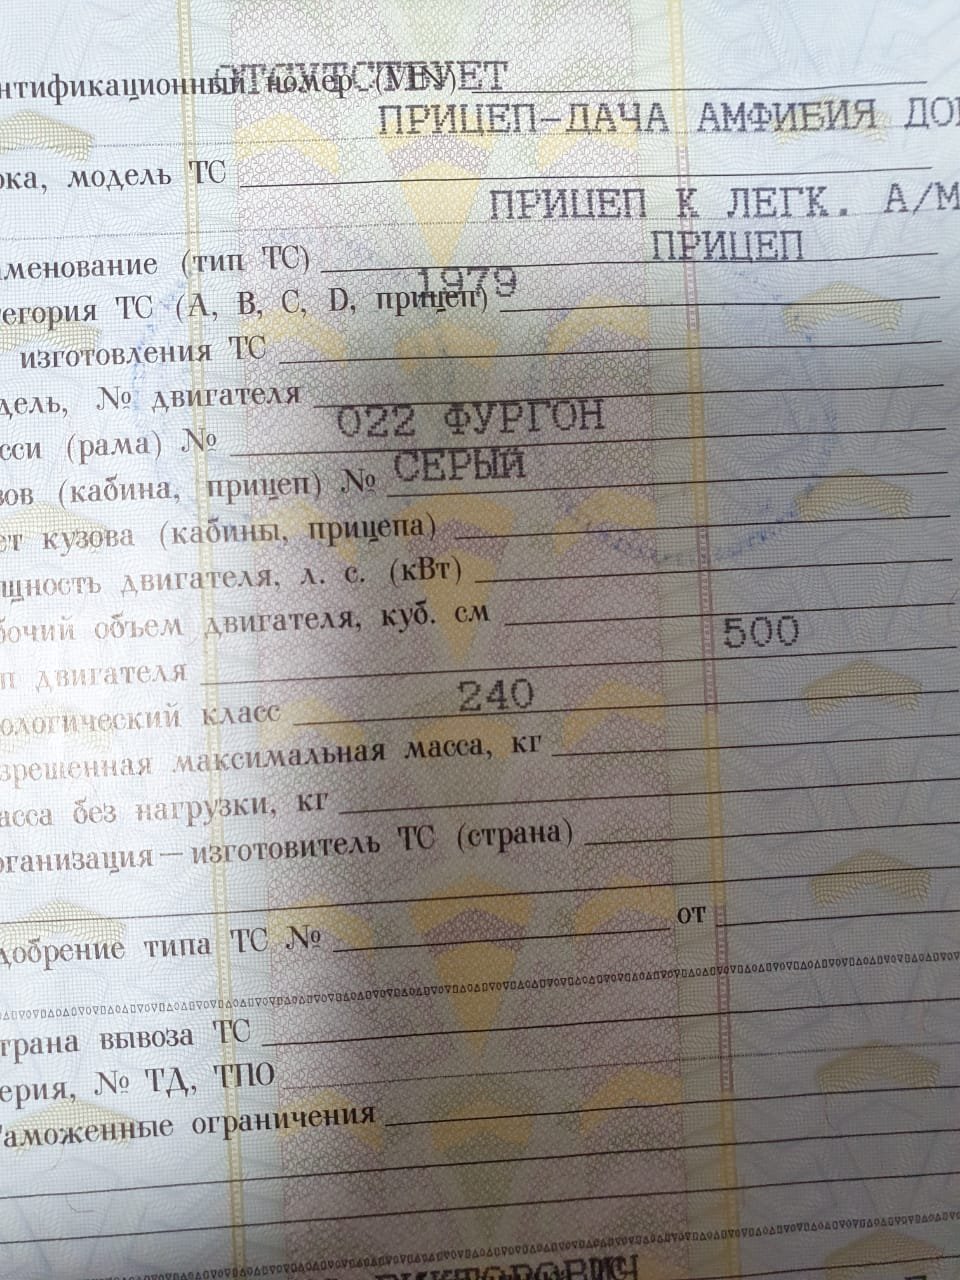 ОТСУТСТВУЕТ
нтификационный номер (VIN)
ПРИЦЕП-ДАЧА АМФИБИЯ ДО
рка, модель ТС
ПРИЦЕП К ЛЕГК. А/М
именование (тип ТС) ПРИЦЕП
1979
егория ТС (A, B, C, D, прицеп)
изготовления ТС
дель, № двигателя
022 ФУРГОН
сси (рама) №
СЕРЫЙ
зов (кабина, прицеп) №
ет кузова (кабины, прицепа)
щность двигателя, л. с. (кВт)
бочий объем двигателя, куб. см
500
п двигателя
240
ологический класс
зрешенная максимальная масса, кг
асса без нагрузки, кг
рганизация — изготовитель ТС (страна)
добрение типа ТС № от
трана вывоза ТС
ерия, № ТД, ТПО
Таможенные ограничения